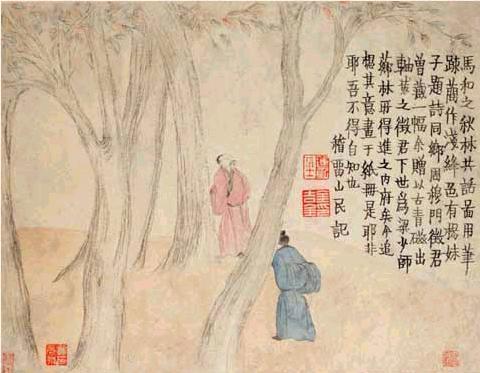 馬和之秋林共話圖用筆
踈簡作淺絳色有楊妹
子題詩同鄉周穆門徵君
曾藏一幅余贈以古青磁出
軸之徵君下世為梁少師
薌林所得進之内府矣今追
想其意畫于紙冊是耶非
耶吾不得自知也
稽留山民記